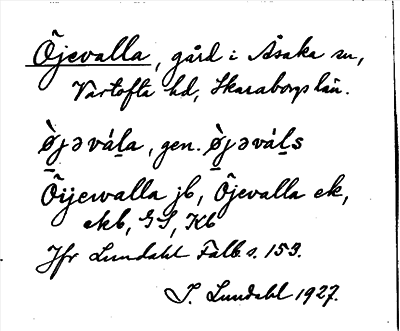 Öjevalla, gård i Åsaka sn,
Vartofta hd, Skaraborgs län.
ö̀jəvála, gen. ö̀jəváls
Öijerwalla jb, Öjevalla ek,
ekb, GS, Kb
Jfr Lundahl Falb. s. 153.
I. Lundahl 1927.